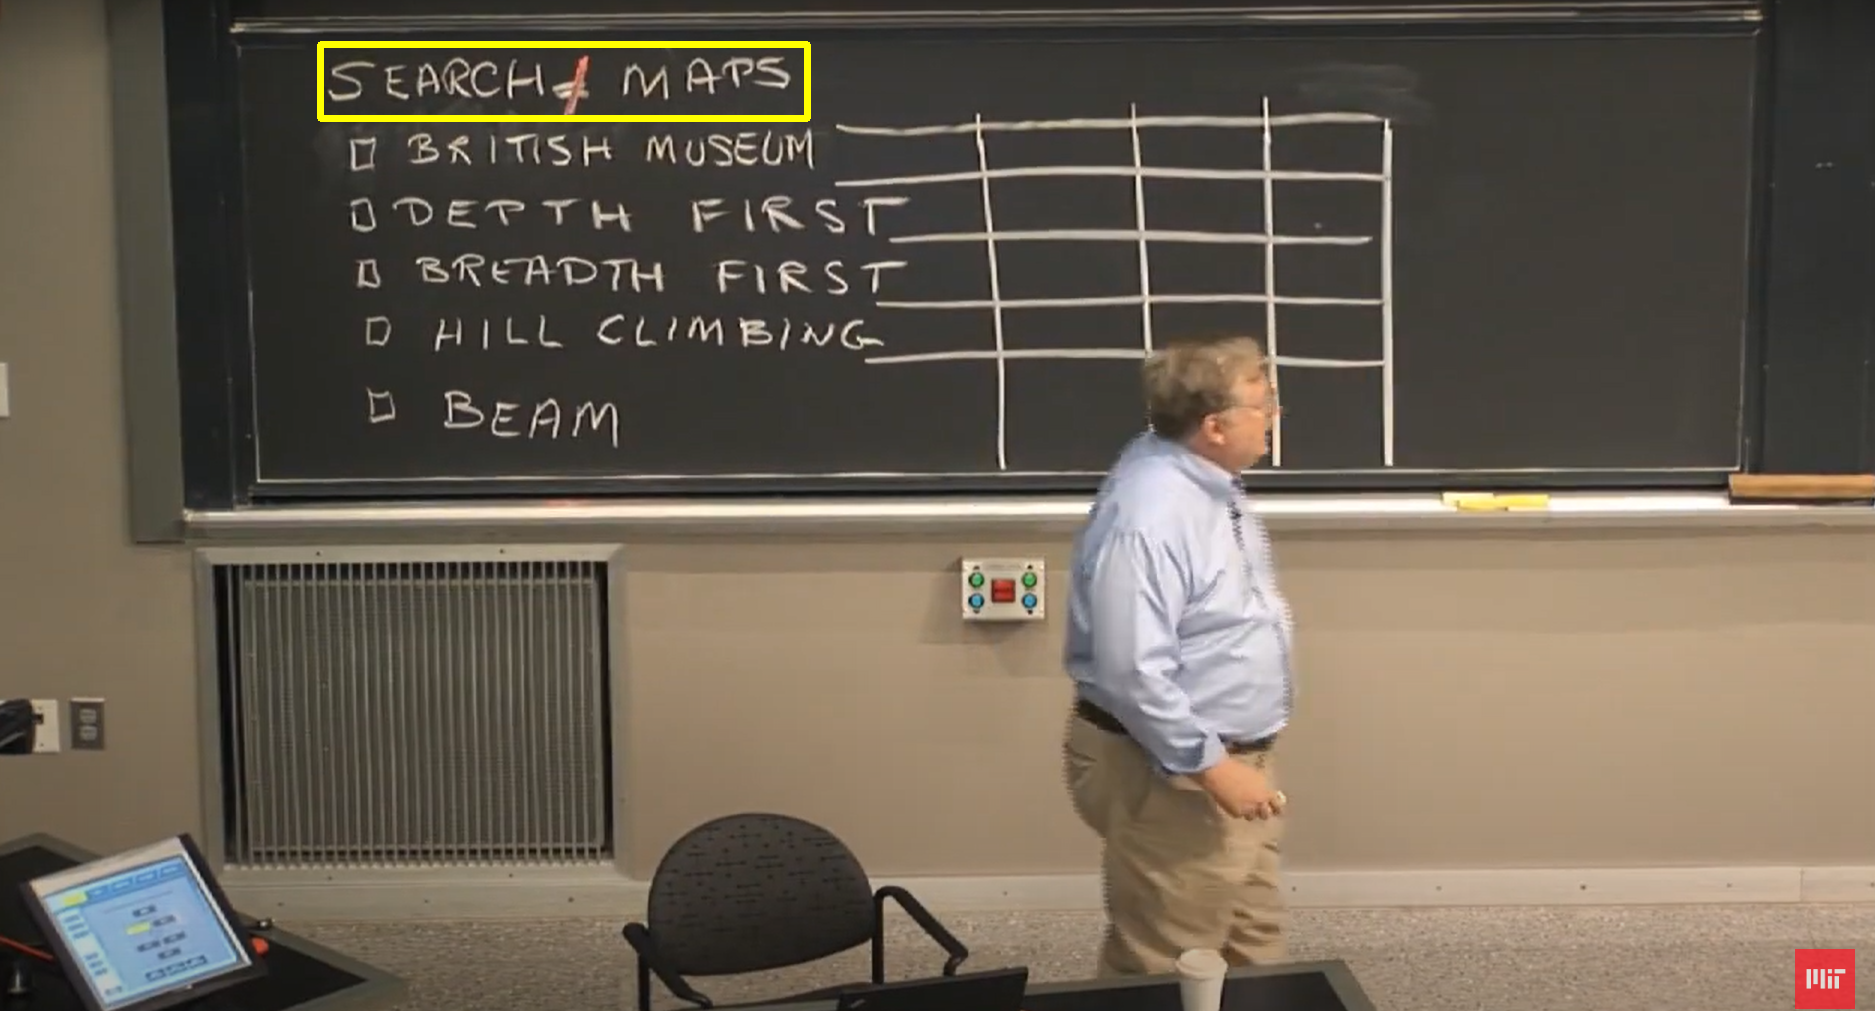 SEARCH ≠ MAPS
□ BRITISH MUSEUM
□ DEPTH FIRST
□ BREADTH FIRST
□ HILL CLIMBING
□ BEAM
MIT